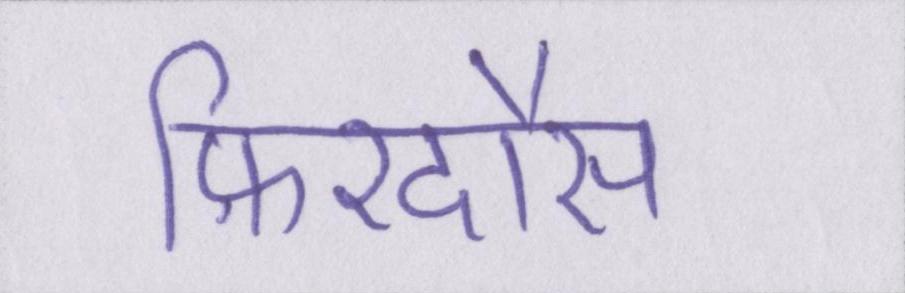 फिरदौस